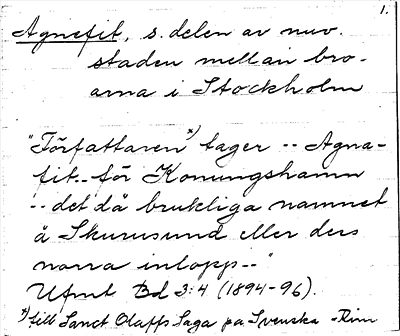 1.
Agnefit, s. delen av nuv.
staden mellan bro-
arna i Stockholm
"Författaren*) tager -- Agna-
fit -- för Konungshamn
-- det då brukliga namnet
å Skurusund eller ders
norra inlopp--"
Ufmt Bd 3:4 (1894-96).
*) till Sanct Olaffs Saga på Svenska Rim